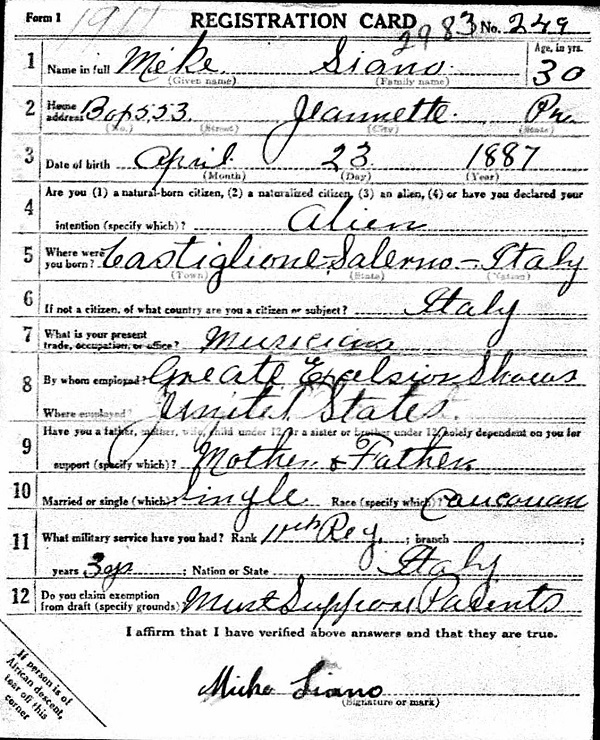 Form 1 1917 REGISTRATION CARD 2983 No. 249
1 Name in full Mike Siano Age, in yrs. 30
(Given name) (Family name)
2 Home address Box 553 Jeannette Pa
(No.) (Street) (City) (State)
3 Date of birth April 23 1887
(Month) (Day) (Year)
4 Are you (1) a natural-born citizen, (2) a naturalized citizen, (3) an alien, (4) or have you declared your
intention (specify which)? Alien
5 Where were you born? Castiglione-Salerno-Italy
(Town) (State) (Nation)
6 If not a citizen, of what country are you a citizen or subject? Italy
7 What is your present trade, occupation, or office? Musician
8 By whom employed? Greate Excelsior Shows
Where employed? United States.
9 Have you a father, mother, wife, child under 12, or a sister or brother under 12, solely dependent on you for
support (specify which)? Mother & Father
10 Married or single (which)? Single Race (specify which)? Caucasian
11 What military service have you had? Rank 11th Reg. ; branch ;
years 3 ys ; Nation or State Italy
12 Do you claim exemption from draft (specify grounds) Must Support Parents
I affirm that I have verified above answers and that they are true.
Mike Siano
(Signature or mark)
If person is of
African descent,
tear off this
corner